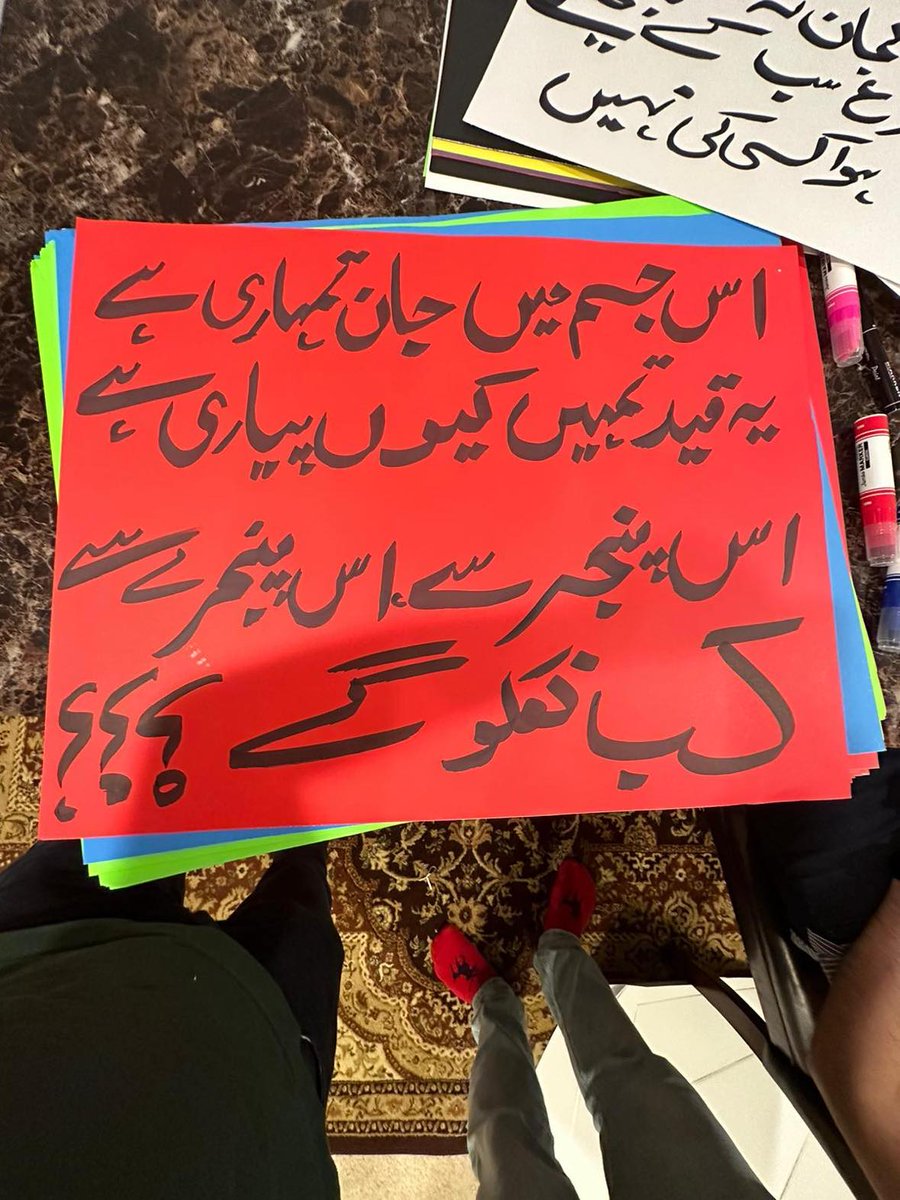 سب کے
ہوا کسی کی نہیں
اس جسم میں جان تمہاری ہے
یہ قید تمہیں کیوں پیاری ہے
اس پنجر سے، اس پنجرے سے
کب نکلو گے ؟؟؟